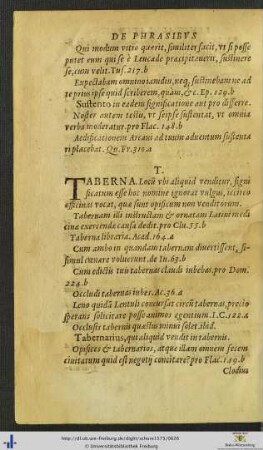 DE PHRASIBVS
Qui modum vitio quærit, similiter facit, vt si posse
putet eum qui se è Leucade præcipitauerit, sustinere
se, cum velit. Tus. 217.b
Expectabam omnino tandiu, neq, sustinebam ne ad
te prius ipse quid scriberem, quàm, &c. Ep. 129.b
Sustento in eadem significatione aut pro differre.
Noster autem testis, vt seipse sustentat, vt omnia
verba moderatur. pro Flac. 148.b
Aedificationem Arcani ad tuum aduentum sustenta
ri placebat. Qu. Fr. 310.a
T.
TABERNA. Locũ vbi aliquid venditur, signi
ficatum esse hoc nomine ignorat vulgus, idcirco
officinas vocat, quæ sunt opificum non venditorum.
Tabernam illi instructam & ornatam Larini medi
cinæ exercendæ causa dedit. pro Clu. 55.b
Taberna libraria. Acad. 164.a
Cum ambo in quandam tabernam diuertissent, si-
mul cœnare voluerunt. de In. 63.b
Cum edictis tuis tabernas claudi iubebas. pro Dom.
224.b
Occludi tabernas iubes. Ac. 36.a
Leno quidã Lentuli concursat circũ tabernas, precio
sperans solicitare posse animos egentium. I.C. 122.a
Occlusis tabernis quæstus minui solet. ibid.
Tabernarius, qui aliquid vendit in tabernis.
Opifices & tabernarios, atque illam omnem fæcem
ciuitatum quid est negotij concitare? pro Flac. 149.b
Clodius
http://dl.ub.uni-freiburg.de/diglit/schore1575/0626
© Universitätsbibliothek Freiburg
Baden-Württemberg